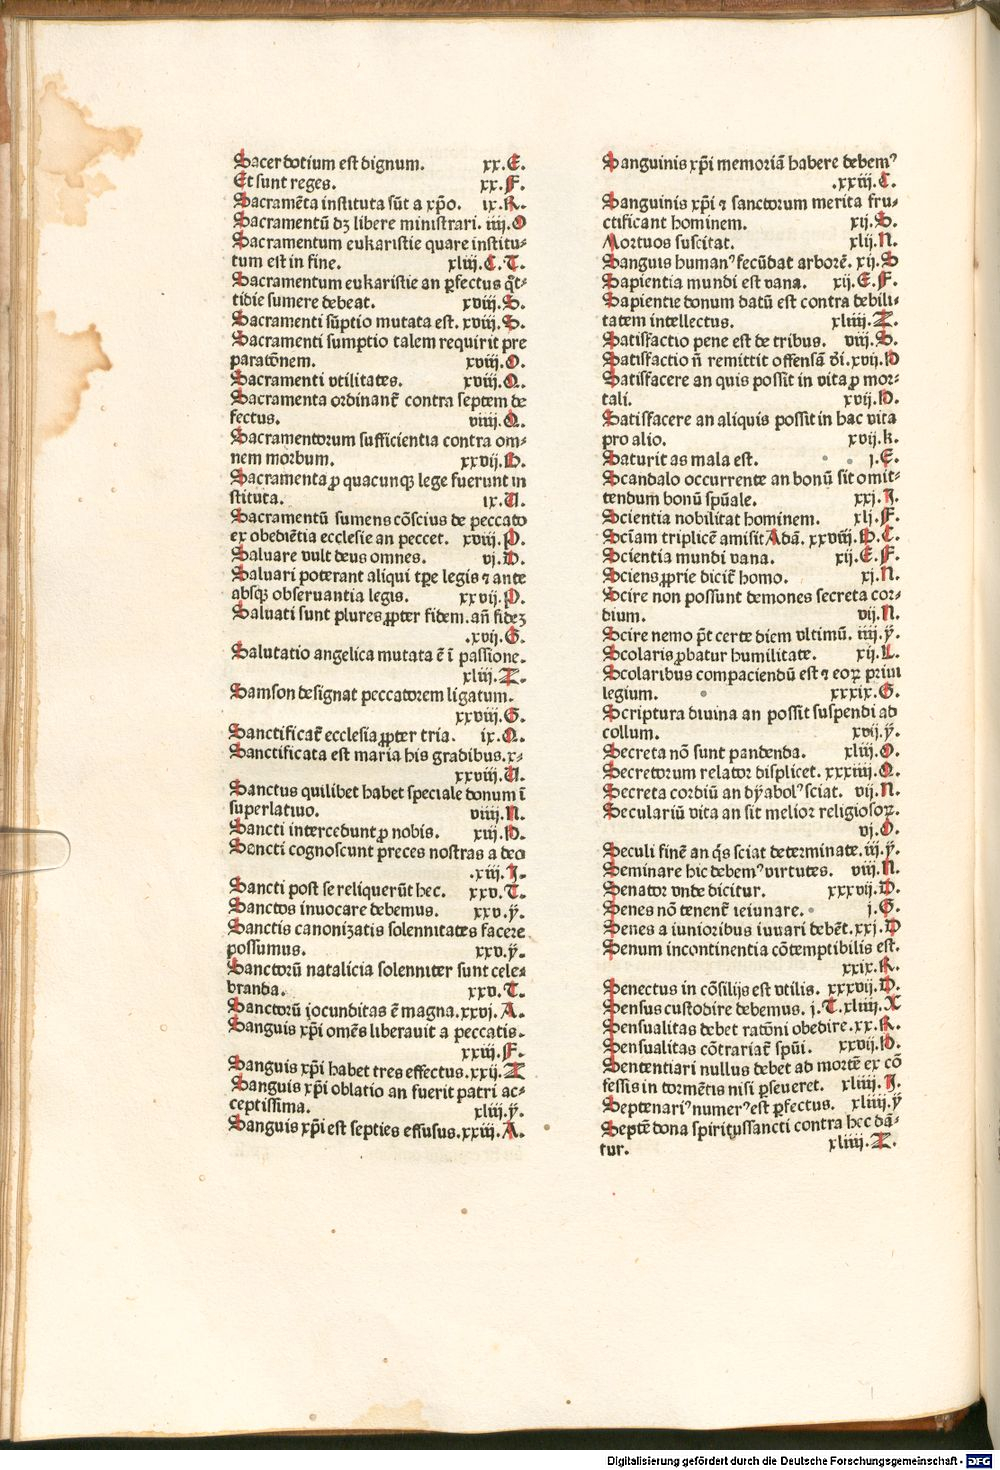 Sacerdotium est dignum. xx.E.
Et sunt reges. xx.F.
Sacramēta instituta sūt a xp̄o. ix.R.
Sacramentū dʒ libere ministrari. iiij.O
Sacramentum eukaristie quare institu⸗
tum est in fine. xliij.C.T.
Sacramentum eukaristie an ꝑfectus q̄t⸗
tidie sumere debeat. xviij.S.
Sacramenti sūptio mutata est. xviij.S.
Sacramenti sumptio talem requirit pre
paratōnem. xviij.O.
Sacramenti vtilitates. xviij.Q.
Sacramenta ordinant᷑ contra septem de
fectus. viiij.Q.
Sacramentorum sufficientia contra om⸗
nem morbum. xxvij.H.
Sacramenta ꝓ quacunqꝫ lege fuerunt in
stituta. ix.U.
Sacramentū sumens cōscius de peccato
ex obediētia ecclesie an peccet. xviij.P.
Saluare vult deus omnes. vj.D.
Saluari poterant aliqui tꝑe legis ⁊ ante
absqꝫ obseruantia legis. xxvij.P.
Saluati sunt plures ꝓpter fidem. an̄ fideʒ
.xvij.G.
Salutatio angelica mutata ē ī passione.
xliij.Z.
Samson designat peccatorem ligatum.
xxviij.G.
Sanctificat᷑ ecclesia ꝓpter tria. ix.Q.
Sanctificata est maria his gradibus.x⸗
xxviij.U.
Sanctus quilibet habet speciale donum ī
superlatiuo. viiij.N.
Sancti intercedunt ꝓ nobis. xiij.H.
Sancti cognoscunt preces nostras a deo
.xiij.I.
Sancti post se reliquerūt hec. xxv.T.
Sanctos inuocare debemus. xxv.ẏ.
Sanctis canonizatis solennitates facere
possumus. xxv.ẏ.
Sanctorū natalicia solenniter sunt cele⸗
branda. xxv.T.
Sanctorū iocunditas ē magna.xxvj.A.
Sanguis xp̄i omēs liberauit a peccatis.
xxiij.F.
Sanguis xp̄i habet tres effectus.xxij.Z
Sanguis xp̄i oblatio an fuerit patri ac⸗
ceptissima. xliij.ẏ.
Sanguis xp̄i est septies effusus.xxiij.A.
Sanguinis xp̄i memoriā habere debemꝰ
.xxiij.C.
Sanguinis xp̄i ⁊ sanctorum merita fru⸗
ctificant hominem. xij.S.
Mortuos suscitat. xlij.N.
Sanguis humanꝰ fecūdat arborē. xij.S
Sapientia mundi est vana. xij.E.F.
Sapientie donum datū est contra debili⸗
tatem intellectus. xliiij.Z.
Satisfactio pene est de tribus. viij.S.
Satisfactio n̄ remittit offensā d̄i.xvij.H
Satisfacere an quis possit in vita ꝓ mor⸗
tali. xvij.H.
Satisfacere an aliquis possit in hac vita
pro alio. xvij.k.
Saturitas mala est. j.E.
Scandalo occurrente an bonū sit omit⸗
tendum bonū spūale. xxj.I.
Scientia nobilitat hominem. xlj.F.
Scīam triplicē amisit Adā. xxviij.B.C.
Scientia mundi vana. xij.E.F.
Sciens ꝓprie dicit᷑ homo. xj.N.
Scire non possunt demones secreta cor⸗
dium. vij.N.
Scire nemo p̄t certe diem vltimū. iiij.ẏ.
Scolaris ꝓbatur humilitate. xij.L.
Scolaribus compaciendū est ⁊ eoꝝ priui
legium. xxxix.G.
Scriptura diuina an possit suspendi ad
collum. xvij.ẏ.
Secreta nō sunt pandenda. xliij.O.
Secretorum relator displicet. xxxiiij.Q.
Secreta cordiū an dẏabolꝰ sciat. vij.N.
Seculariū vita an sit melior religiosoꝝ.
vj.O.
Seculi finē an q̄s sciat determinate.iij.ẏ.
Seminare hic debemꝰ virtutes. viij.N.
Senator vnde dicitur. xxxvij.D.
Senes nō tenent᷑ ieiunare. j.G.
Senes a iunioribus iuuari debēt.xxj.D
Senum incontinentia cōtemptibilis est.
xxix.R.
Senectus in cōsilijs est vtilis. xxxvij.D.
Sensus custodire debemus. j.T.xliiij.X
Sensualitas debet ratōni obedire.xx.R.
Sensualitas cōtrariat᷑ spūi. xxvij.H.
Sententiari nullus debet ad mortē ex cō
fessis in tormētis nisi ꝑseueret. xliiij.I.
Septenariꝰ numerꝰ est ꝑfectus. xliiij.ẏ
Septē dona spiritussancti contra hec dā⸗
tur. xliiij.Z.
Digitalisierung gefördert durch die Deutsche Forschungsgemeinschaft - DFG